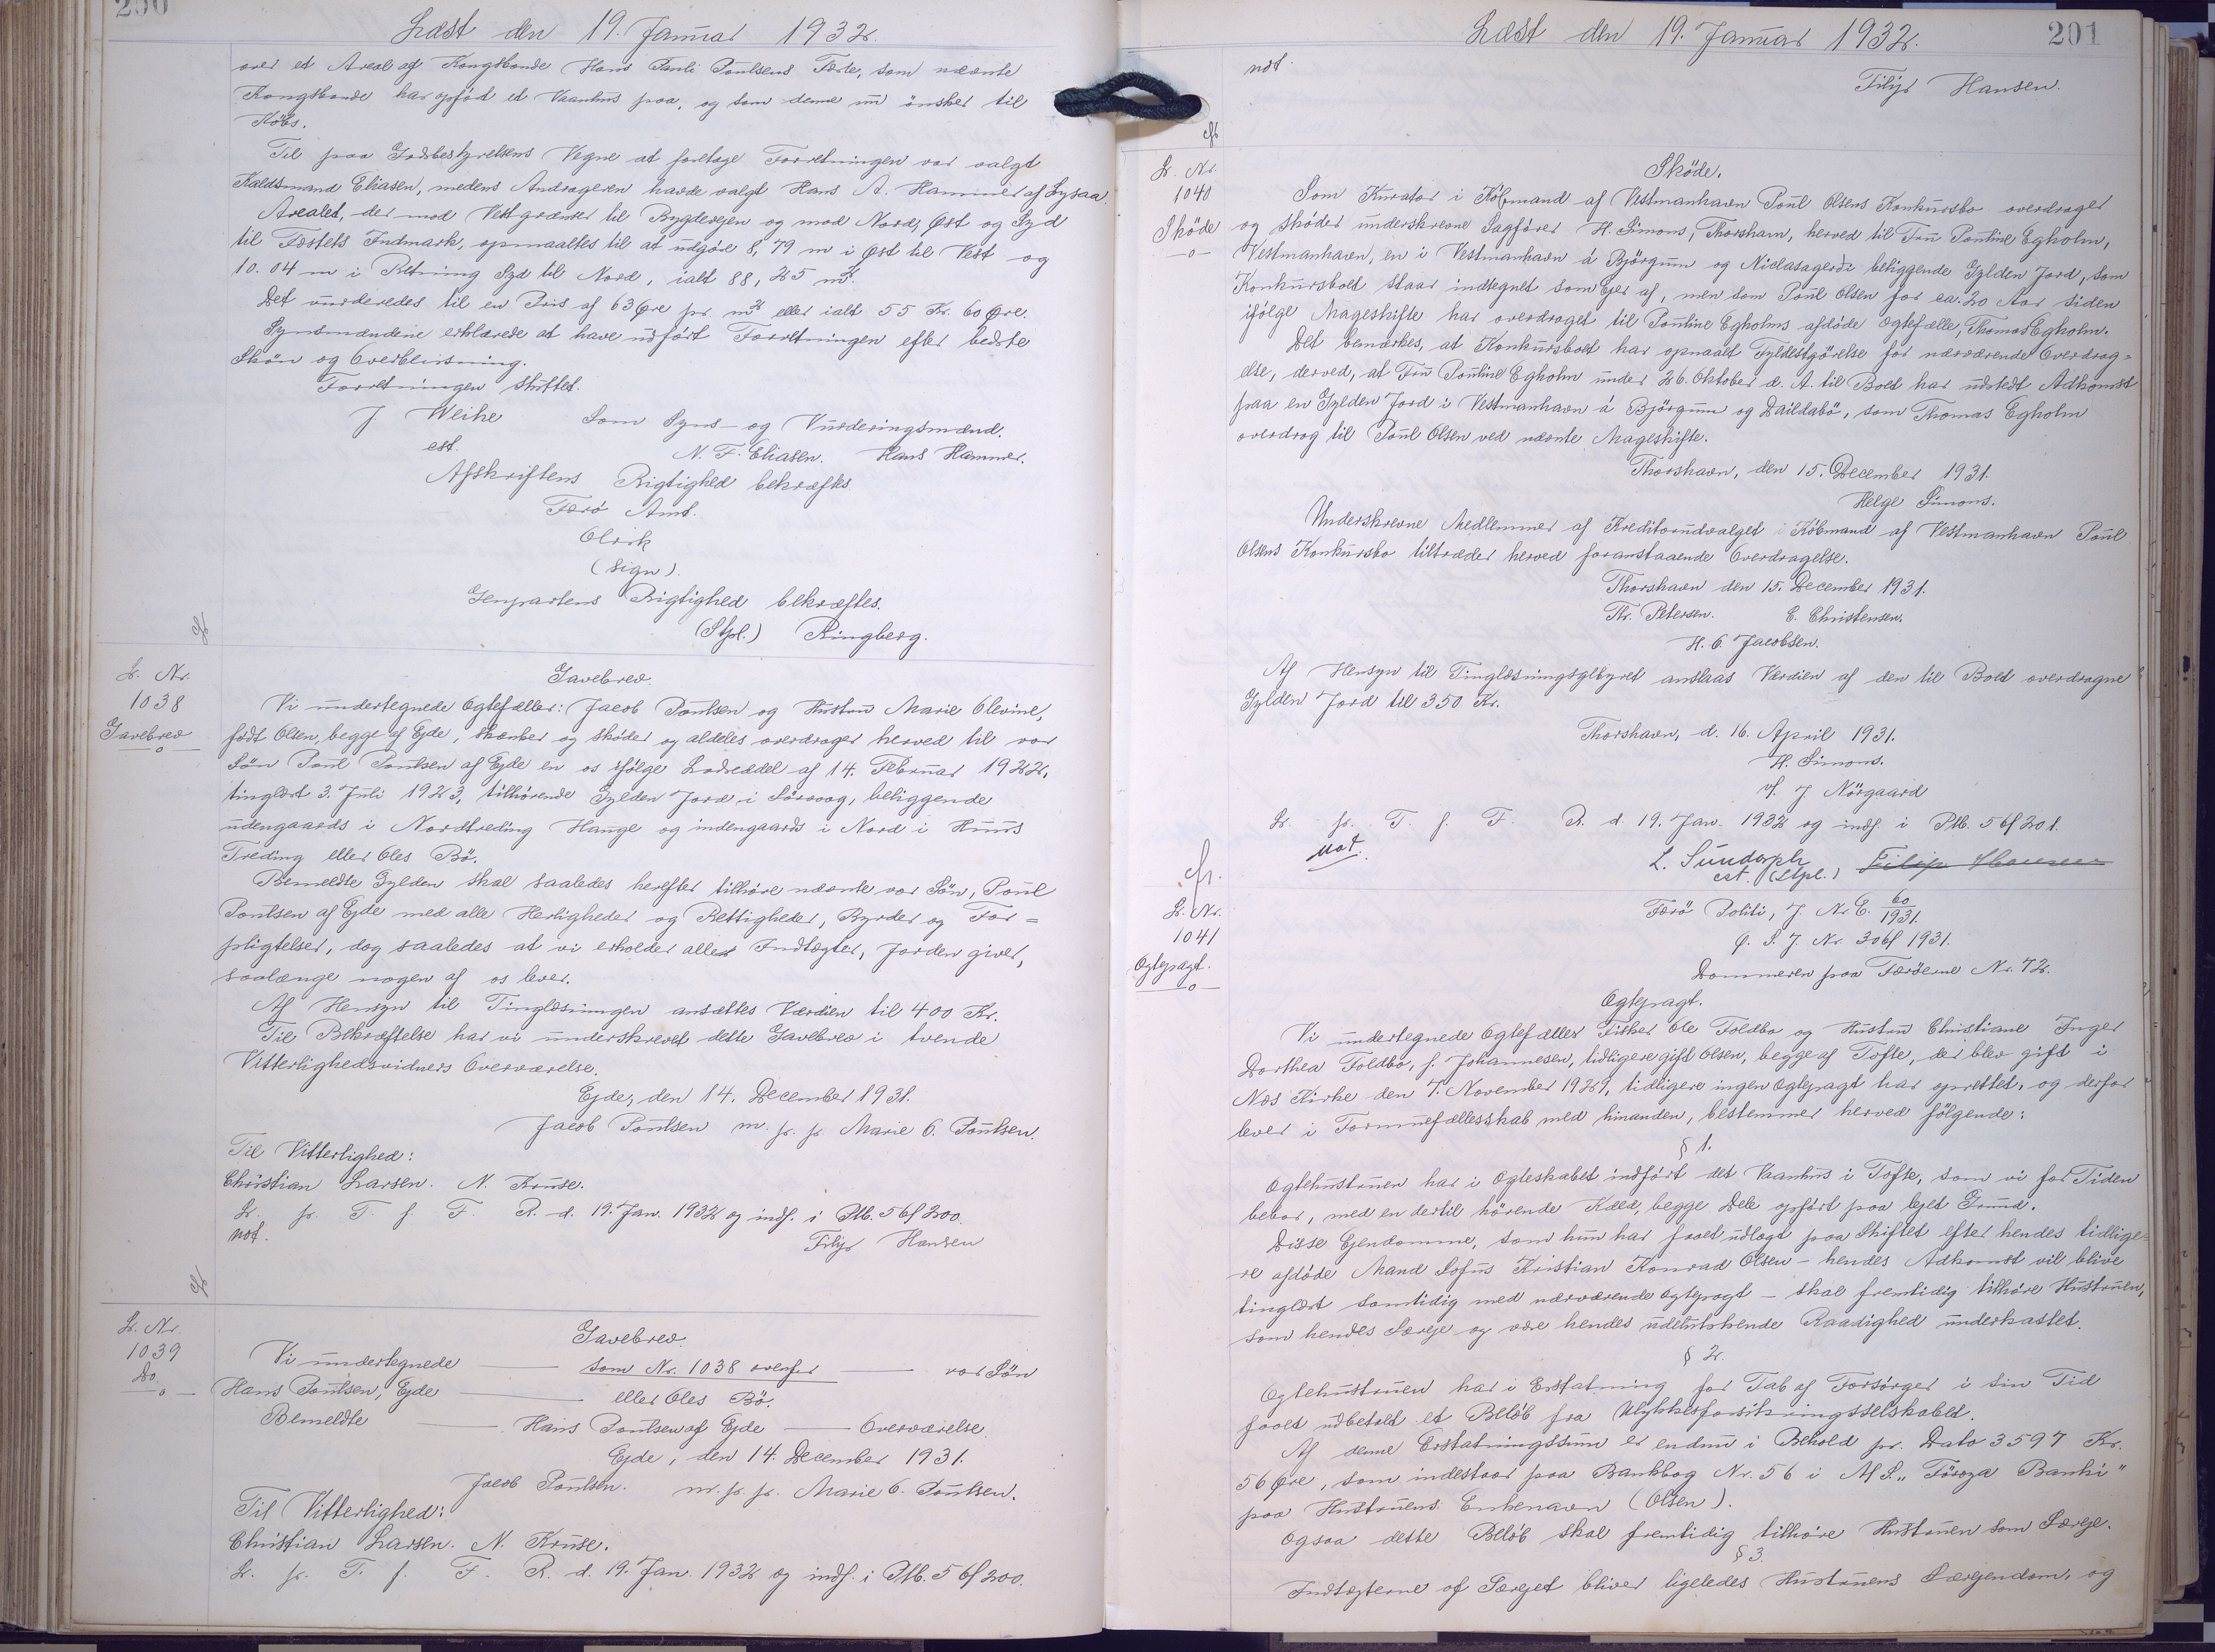 200
Læst den 19. Januar 1932.
over et Areal af Kongsbonde Hans Pauli Poulsens Fæste, som nævnte
Kongsbonde har opført et Vaanhus paa, og som denne nu ønsker til
Købs.
Til paa Jordbestyrelsens Vegne at foretage Forretningen var valgt
Kaldsmand Eliasen, medens Andrageren havde valgt Hans A. Hammer af Lysaa.
Arealet, der mod Vest grænser til Bygdevejen og mod Nord, Øst og Syd
til Fæstets Indmark, opmaaltes til at udgöre 8,79 m i Øst til Vest og
10.04 m i Retning Syd til Nord, ialt 88,25 m².
Det vurderedes til en Pris af 63 Øre pr. m² eller ialt 55 Kr. 60 Øre.
Synsmændene erklærede at have udført Forretningen efter bedste
Skön og Overbevisning.
Forretningen sluttet.
J Weihe Som Syns- og Vurderingsmænd.
est. N. F. Eliasen. Hans Hammer.
Afskriftens Rigtighed bekræftes
Færö Amt.
Olrik
(sign)
Genpartens Rigtighed bekræftes.
(Stpl.) Ringberg.
L. Nr.
1038
Gavebrev
Gavebrev.
Vi undertegnede Ægtefæller: Jacob Poulsen og Hustru Marie Olevine,
født Olsen, begge af Ejde, skænker og skøder og aldeles overdrager herved til vor
Sön Poul Poulsen af Ejde en os ifølge Lodseddel af 14. Februar 1922,
tinglæst 3. Juli 1923, tilhørende Gylden Jord i Sörvaag, beliggende
udengaards i Nordtreding Hauge og indengaards i Nord i Huus
Treding eller Oles Bö.
Bemeldte Gylden skal saaledes herefter tilhöre nævnte vor Sön, Poul
Poulsen af Ejde med alle Herligheder og Rettigheder, Byrder og For=
pligtelser, dog saaledes at vi erholder alle Indtægter, Jorden giver,
saalænge nogen af os lever.
Af Hensyn til Tinglæsningen ansættes Værdien til 400 Kr.
Til Bekræftelse har vi underskrevet dette Gavebrev i tvende
Vitterlighedsvidners Overværelse.
Ejde, den 14. December 1931.
Jacob Poulsen m. p. p. Marie O. Poulsen.
Til Vitterlighed:
Christian Larsen. N. Kruse.
L. p. T. f. F. R. d. 19. Jan. 1932 og indf. i Ptb. 56 f 200.
not. Filip Hansen
L. Nr.
1039
Do
Gavebrev.
Vi undertegnede — som Nr. 1038 ovenfor — vor Sön
Hans Poulsen, Ejde — eller Oles Bö.
Bemeldte — Hans Poulsen af Ejde — Overværelse.
Ejde, den 14. December 1931.
Jacob Poulsen. m. p. p. Marie O. Poulsen.
Til Vitterlighed:
Christian Larsen. N. Kruse.
L. p. T. f. F. R. d. 19. Jan. 1932 og indf. i Ptb. 56 f 200.
Læst den 19. Januar 1932.
201
not.
Filip Hansen.
L. Nr.
1040
Sköde
Sköde.
Som Kurator i Købmand af Vestmanhavn Poul Olsens Konkursbo overdrager
og sköder underskrevne Sagfører H. Simons, Thorshavn, herved til Fru Pouline Egholm,
Vestmanhavn, en i Vestmanhavn á Björgum og Niclasagerdi beliggende Gylden Jord, som
Konkursboet staar indtegnet som Ejer af, men som Poul Olsen for ca. 20 Aar siden
ifölge Mageskifte har overdraget til Pouline Egholms afdöde Ægtefælle, Thomas Egholm.
Det bemærkes, at Konkursboet har opnaaet Fyldestgörelse for nærværende Overdrag=
else, derved, at Fru Pouline Egholm under 26. Oktober d. A. til Boet har udstedt Adkomst
paa en Gylden Jord i Vestmanhavn á Björgum og Daildabö, som Thomas Egholm
overdrog til Poul Olsen ved nævnte Mageskifte.
Thorshavn, den 15. December 1931.
Helge Simons.
Underskrevne Medlemmer af Kreditorudvalget i Købmand af Vestmanhavn Poul
Olsens Konkursbo tiltræder herved foranstaaende Overdragelse.
Thorshavn den 15. December 1931.
Thr. Petersen. E. Christensen.
H. O. Jacobsen.
Af Hensyn til Tinglæsningsgebyret anslaas Værdien af den til Boet overdragne
Gylden Jord til 350 Kr.
Thorshavn, d. 16. April 1931.
H. Simons.
v/. J Nörgaard
L. p. T. f. F. R. d. 19. Jan. 1932 og indf. i Ptb. 56 f 201.
not. L. Sundorph
cst. (Stpl.) Filip Hansen
L. Nr.
1041
Ægtepagt.
Færö Politi, J. Nr. E. 60/1931.
Ø. L. J. Nr. 306/1931.
Dommeren paa Færöerne Nr. 72.
Ægtepagt.
Vi undertegnede Ægtefæller Fisker Ole Foldbo og Hustru Christiane Inger
Dorthea Foldbo, f. Johannesen, tidligere gift Olsen, begge af Tofte, der blev gift i
Nes Kirke den 7. November 1929, tidligere ingen Ægtepagt har oprettet, og derfor
lever i Formuefællesskab med hinanden, bestemmer herved følgende:
§ 1.
Ægtehustruen har i Ægteskabet indført det Vaanhus i Tofte, som vi for Tiden
bebor, med en dertil hörende Kæld, begge Dele opført paa lejet Grund.
Disse Ejendomme, som hun har faaet udlagt paa Skiftet efter hendes tidlige=
re afdöde Mand Sofus Kristian Konrad Olsen - hendes Adkomst vil blive
tinglæst samtidig med nærværende Ægtepagt - skal fremtidig tilhöre Hustruen,
som hendes Særeje og være hendes udelukkende Raadighed underkastet.
§ 2.
Ægtehustruen har i Erstatning for Tab af Forsörger i sin Tid
faaet udbetalt et Beløb fra Ulykkesforsikringsselskabet.
Af denne Erstatningssum er endnu i Behold pr. Dato 3597 Kr.
56 Øre, som indestaar paa Bankbog Nr. 56 i A/S „Föroya Banki"
paa Hustruens Enkenavn (Olsen).
Ogsaa dette Beløb skal fremtidig tilhøre Hustruen som Særeje.
§ 3.
Indtægterne af Særejet bliver ligeledes Hustruens Særejendom, og